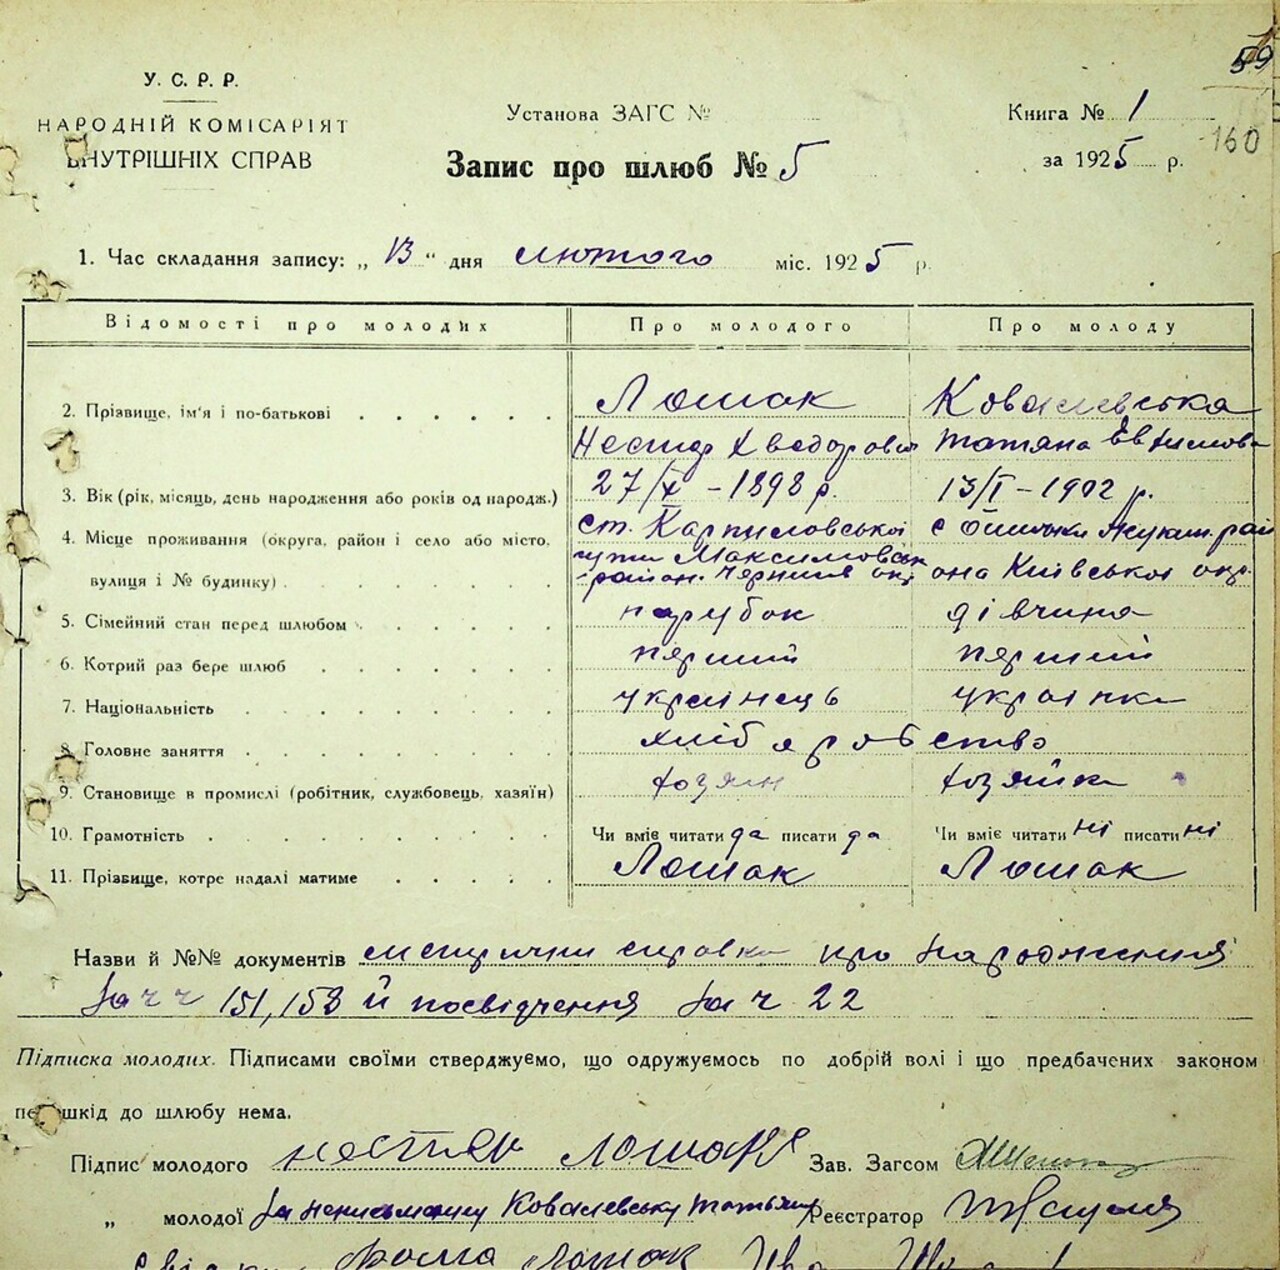 59
У. С. Р. Р.
НАРОДНІЙ КОМІСАРІЯТ
ВНУТРІШНІХ СПРАВ
Установа ЗАГС №
Запис про шлюб № 5
Книга № 1
за 1925 р.
160
1. Час складання запису: „13“ дня лютого міс. 1925 р.
Відомості про молодих Про молодого Про молоду
2. Прізвище, ім'я і по-батькові Лошак Ковалевська
Нестир Хведорович Татяна Евтимова
3. Вік (рік, місяць, день народження або років од народж.) 27/X - 1898 р. 13/I - 1902 р.
4. Місце проживання (округа, район і село або місто, ст. Карпиловської с
вулиця і № будинку) Максимовськ район. Черниг окр она Київської окр.
5. Сімейний стан перед шлюбом парубок дівчина
6. Котрий раз бере шлюб перший перший
7. Національність українець українка
8. Головне заняття хліборобство
9. Становище в промислі (робітник, службовець, хазяїн) хозяин хозяйка
10. Грамотність Чи вміє читати да писати да Чи вміє читати ні писати ні
11. Прізвище, котре надалі матиме Лошак Лошак
Назви й №№ документів метрични справки про народження
за ч ч 151, 158 й посвідчення за ч 22
Підписка молодих. Підписами своїми стверджуємо, що одружуємось по добрій волі і що предбачених законом
перешкід до шлюбу нема.
Підпис молодого Нестяр Лошак Зав. Загсом
„ молодої за неписьменну Ковалевську Татьяну Реєстратор
Лошак